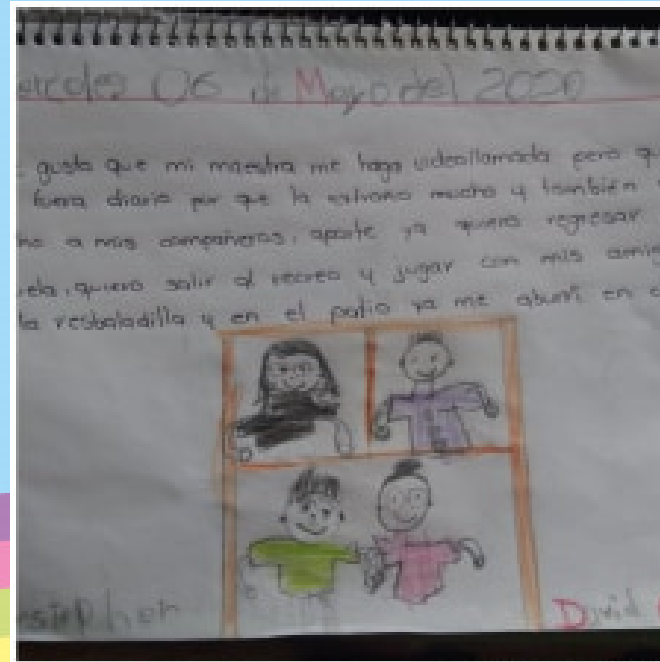 ercoles 06 de Mayo del 2020
gusta que mi maestra me haga videollamada pero q
fuera diario por que la extraño mucho y también
ño a mis compañeros, aparte ya quiero regresar
ela, quiero salir al recreo y jugar con mis amig
la resbaladilla y en el patio ya me aburri en c
estephen
David